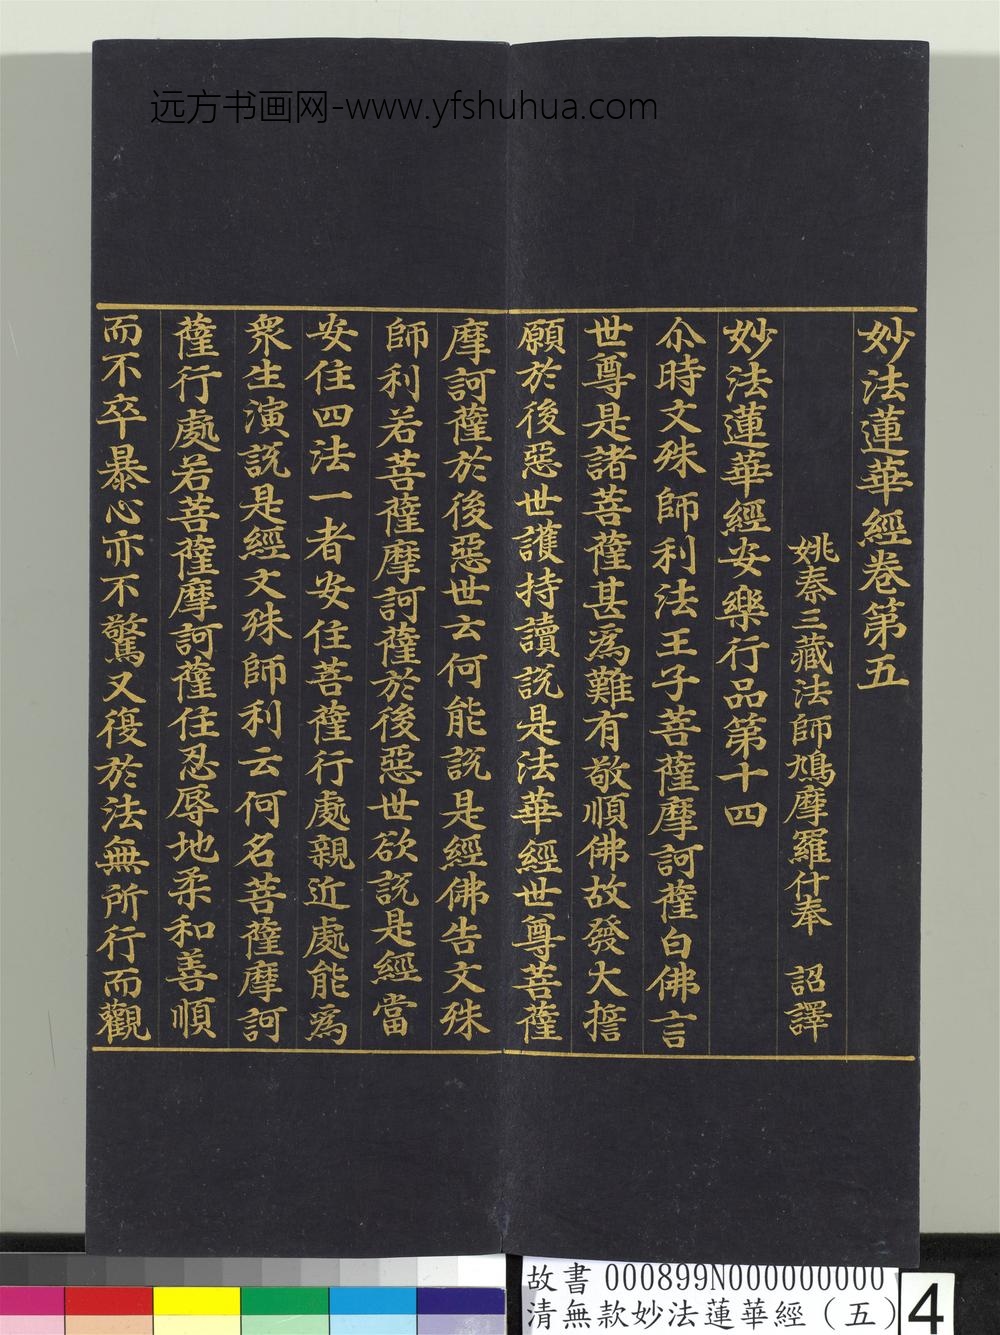 远方书画网-www.yfshuhua.com
妙法蓮華經卷第五
姚秦三藏法師鳩摩羅什奉　詔譯
妙法蓮華經安樂行品第十四
尒時文殊師利法王子菩薩摩訶薩白佛言
世尊是諸菩薩甚為難有敬順佛故發大誓
願於後惡世護持讀說是法華經世尊菩薩
摩訶薩於後惡世云何能說是經佛告文殊
師利若菩薩摩訶薩於後惡世欲說是經當
安住四法一者安住菩薩行處親近處能為
眾生演說是經文殊師利云何名菩薩摩訶
薩行處若菩薩摩訶薩住忍辱地柔和善順
而不卒暴心亦不驚又復於法無所行而觀
故書 000899N000000000
清無款妙法蓮華經（五）
4